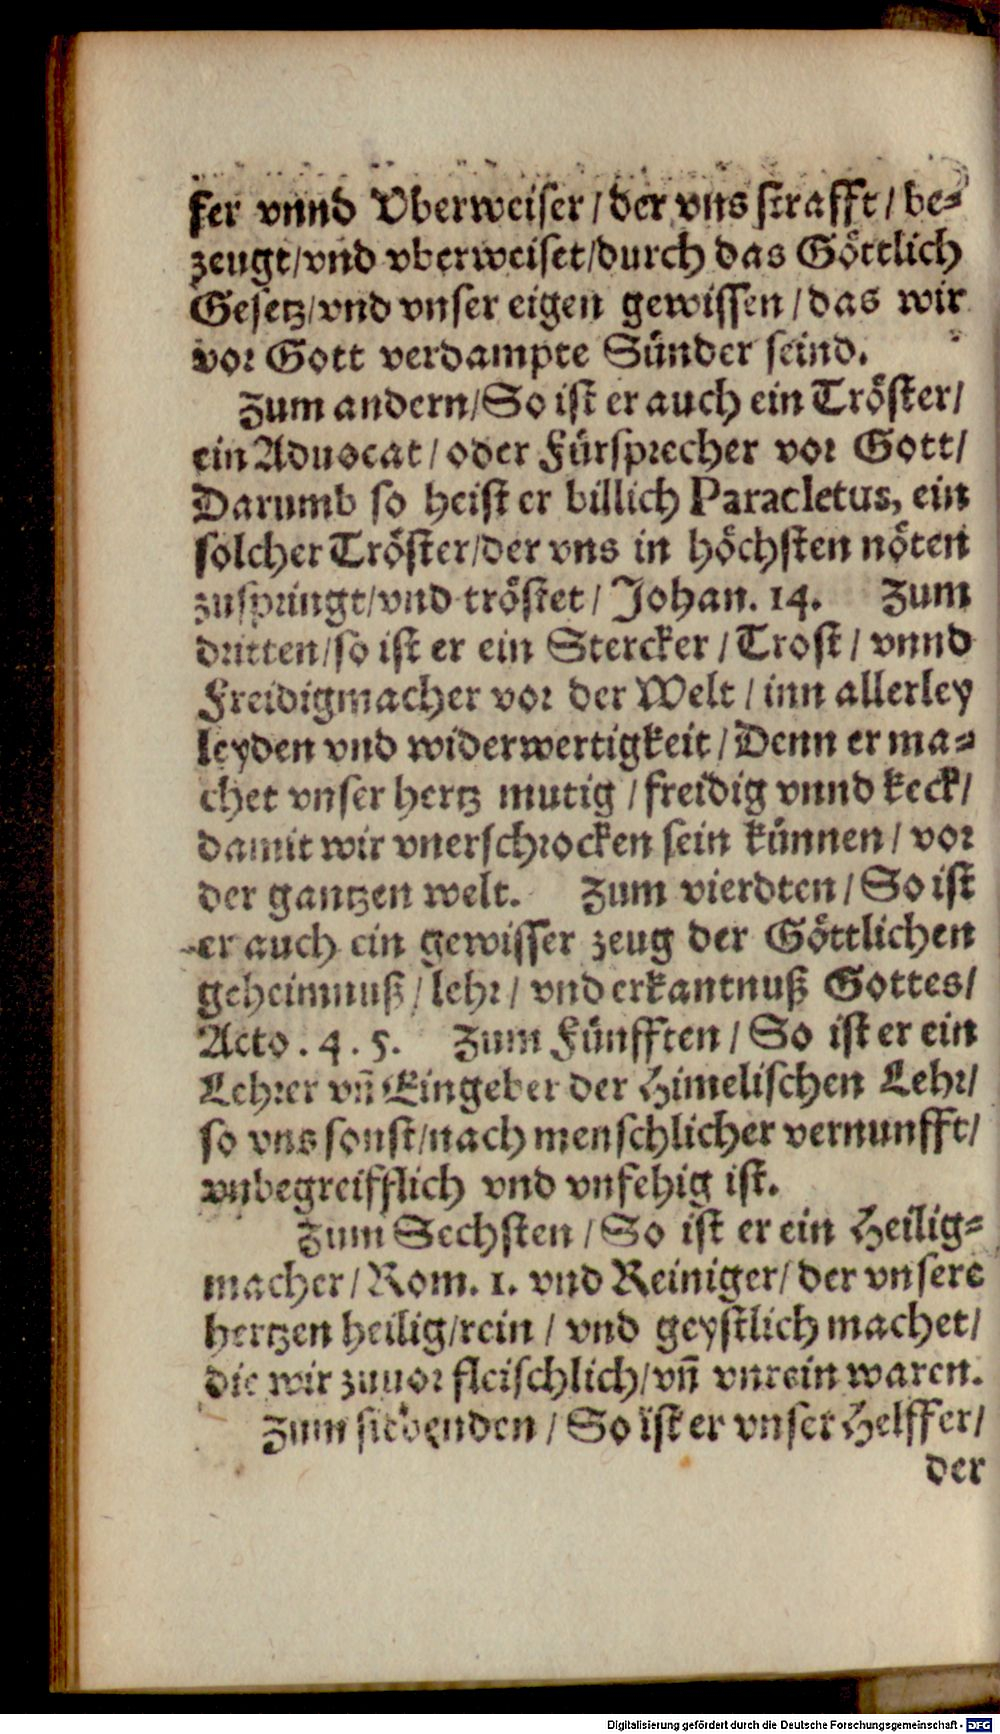 fer vnnd Vberweiser / der vns strafft / be⸗
zeugt/vnd vberweiset/durch das Göttlich
Gesetz/vnd vnser eigen gewissen / das wir
vor Gott verdampte Sünder seind.
Zum andern/So ist er auch ein Tröster/
ein Aduocat / oder Fürsprecher vor Gott/
Darumb so heist er billich Paracletus, ein
solcher Tröster/der vns in höchsten nöten
zuspringt/vnd tröstet / Johan. 14. Zum
dritten/so ist er ein Stercker / Trost / vnnd
Freidigmacher vor der Welt / inn allerley
leyden vnd widerwertigkeit / Denn er ma⸗
chet vnser hertz mutig / freidig vnnd keck/
damit wir vnerschrocken sein künnen / vor
der gantzen welt. Zum vierdten / So ist
er auch ein gewisser zeug der Göttlichen
geheimnuß / lehr / vnd erkantnuß Gottes/
Acto. 4. 5. Zum Fünfften / So ist er ein
Lehrer vñ Eingeber der Himelischen Lehr/
so vns sonst/nach menschlicher vernunfft/
vnbegreifflich vnd vnfehig ist.
Zum Sechsten / So ist er ein Heilig⸗
macher / Rom. 1. vnd Reiniger/ der vnsere
hertzen heilig/rein / vnd geystlich machet/
die wir zuuor fleischlich/vñ vnrein waren.
Zum siebenden / So ist er vnser Helffer/
der
Digitalisierung gefördert durch die Deutsche Forschungsgemeinschaft - DFG